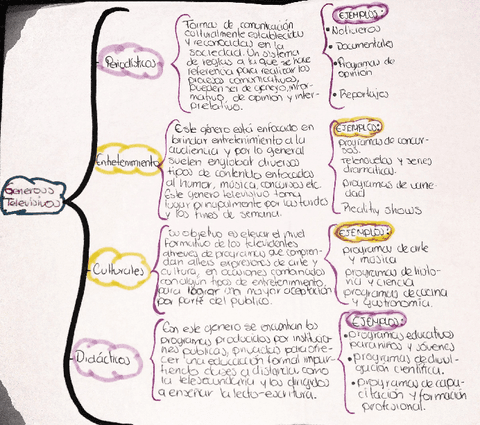 Generos
Televisivos
Periodísticos
Formas de comunicación
culturalmente establecidas
y reconocidas en la
sociedad. Un sistema
de reglas a la que se hace
referencia para realizar los
procesos comunicativos,
pueden ser de genero, infor-
mativo, de opinion y inter-
pretativo.
EJEMPLOS:
• Noticieros
• Documentales
• Programas de
opinion
• Reportajes
Entretenimiento
Este género está enfocado en
brindar entretenimiento a la
audiencia y por lo general
suelen englobar diversos
tipos de contenido enfocados
al humor, música, concursos etc.
Este género televisivo toma
lugar principalmente por las tardes
y los fines de semana.
EJEMPLOS:
programas de concur-
sos.
Telenovelas y series
dramaticas.
programas de come-
dia
Reality shows
Culturales
Su objetivo es elevar el nivel
formativo de los televidentes
atraves de programas que compren-
dan altas expresiones de arte y
cultura, en ocasiones combinados
con algún tipos de entretenimiento,
para lograr una mayor aceptación
por parte del publico.
EJEMPLOS:
programas de arte
y musica
programas de histo-
ria y ciencia
programas de cocina
y gastronomía.
Didácticos
Con este genero se encuentran los
programas producidos por institucio-
nes publicas, privadas para ofre-
cer una educación formal impar-
tiendo clases a distancia como
la telesecundaria y los dirigidos
a enseñar la lecto-escritura.
EJEMPLOS:
• programas educativos
para niños y jóvenes
• programas de divul-
gación científica.
• programas de capa-
citación y formación
profesional.